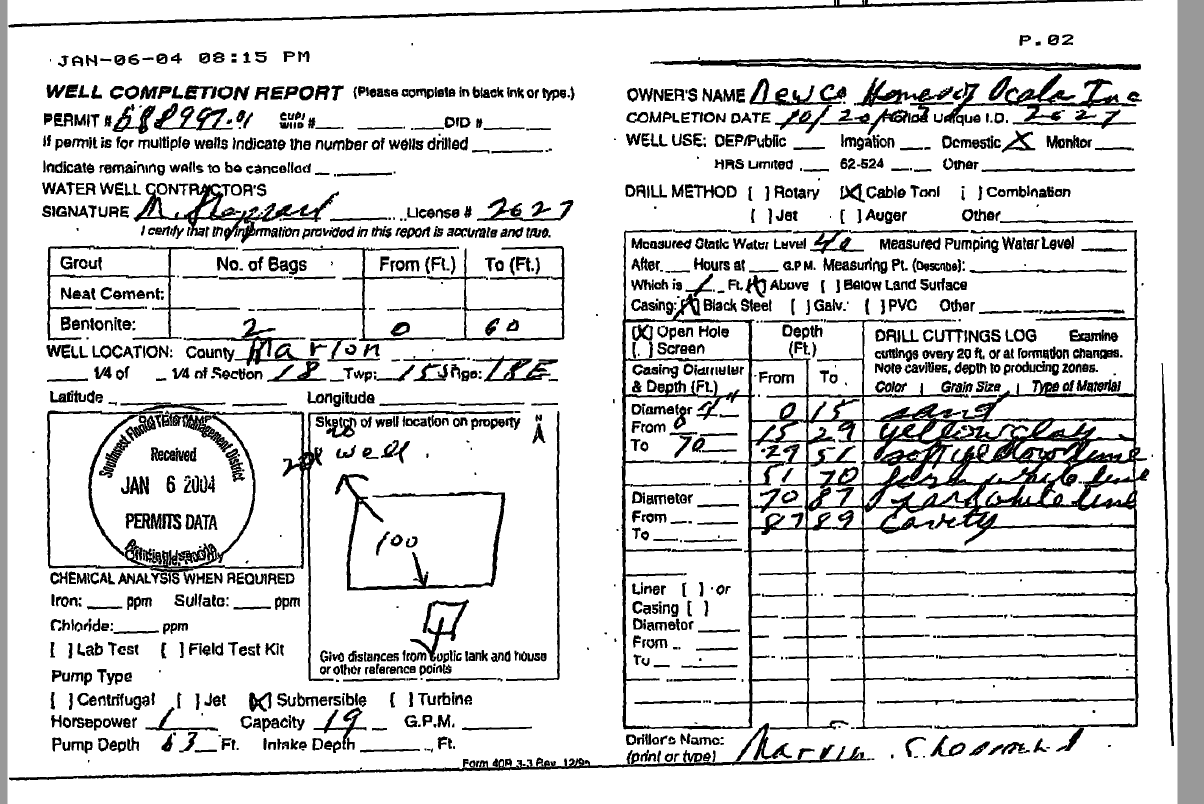 JAN-06-04 08:15 PM
P.02
WELL COMPLETION REPORT (Please complete in black ink or type.)
PERMIT # 688997.01 CUP/WUP # DID #
If permit is for multiple wells indicate the number of wells drilled
Indicate remaining wells to be cancelled
WATER WELL CONTRACTOR'S
SIGNATURE M. Sheppard License # 2627
I certify that the information provided in this report is accurate and true.
Grout No. of Bags From (Ft.) To (Ft.)
Neat Cement:
Bentonite: 2 0 60
WELL LOCATION: County Marion
1/4 of 1/4 of Section 18 Twp: 15S Rge: 18E
Latitude Longitude
Southwest Florida Water Management District
Received
JAN 6 2004
PERMITS DATA
Sketch of well location on property N
well
100
Give distances from septic tank and house
or other reference points
CHEMICAL ANALYSIS WHEN REQUIRED
Iron: ppm Sulfate: ppm
Chloride: ppm
[ ] Lab Test [ ] Field Test Kit
Pump Type
[ ] Centrifugal [ ] Jet [X] Submersible [ ] Turbine
Horsepower 1 Capacity 19 G.P.M.
Pump Depth 63 Ft. Intake Depth Ft.
Form 40R 3-3 Rev. 12/9
OWNER'S NAME Newco Homes of Ocala Inc
COMPLETION DATE 10/20/ Unique I.D. 2627
WELL USE: DEP/Public Irrigation Domestic X Monitor
HRS Limited 62-524 Other
DRILL METHOD [ ] Rotary [X] Cable Tool [ ] Combination
[ ] Jet [ ] Auger Other
Measured Static Water Level 40 Measured Pumping Water Level
After Hours at G.P.M. Measuring Pt. (Describe):
Which is 1 Ft. [X] Above [ ] Below Land Surface
Casing: [X] Black Steel [ ] Galv. [ ] PVC Other
[X] Open Hole
[ ] Screen
Depth
(Ft.)
DRILL CUTTINGS LOG Examine
cuttings every 20 ft. or at formation changes.
Note cavities, depth to producing zones.
Casing Diameter
& Depth (Ft.)
From To
Color Grain Size Type of Material
Diameter 4" 0 15 sand
From 0 15 29 yellow clay
To 70 29 51 soft yellow lime
51 70 white lime
Diameter 70 87 hard white lime
From 87 89 cavity
To
Liner [ ] or
Casing [ ]
Diameter
From
To
Driller's Name:
(print or type) Marvin Sheppard